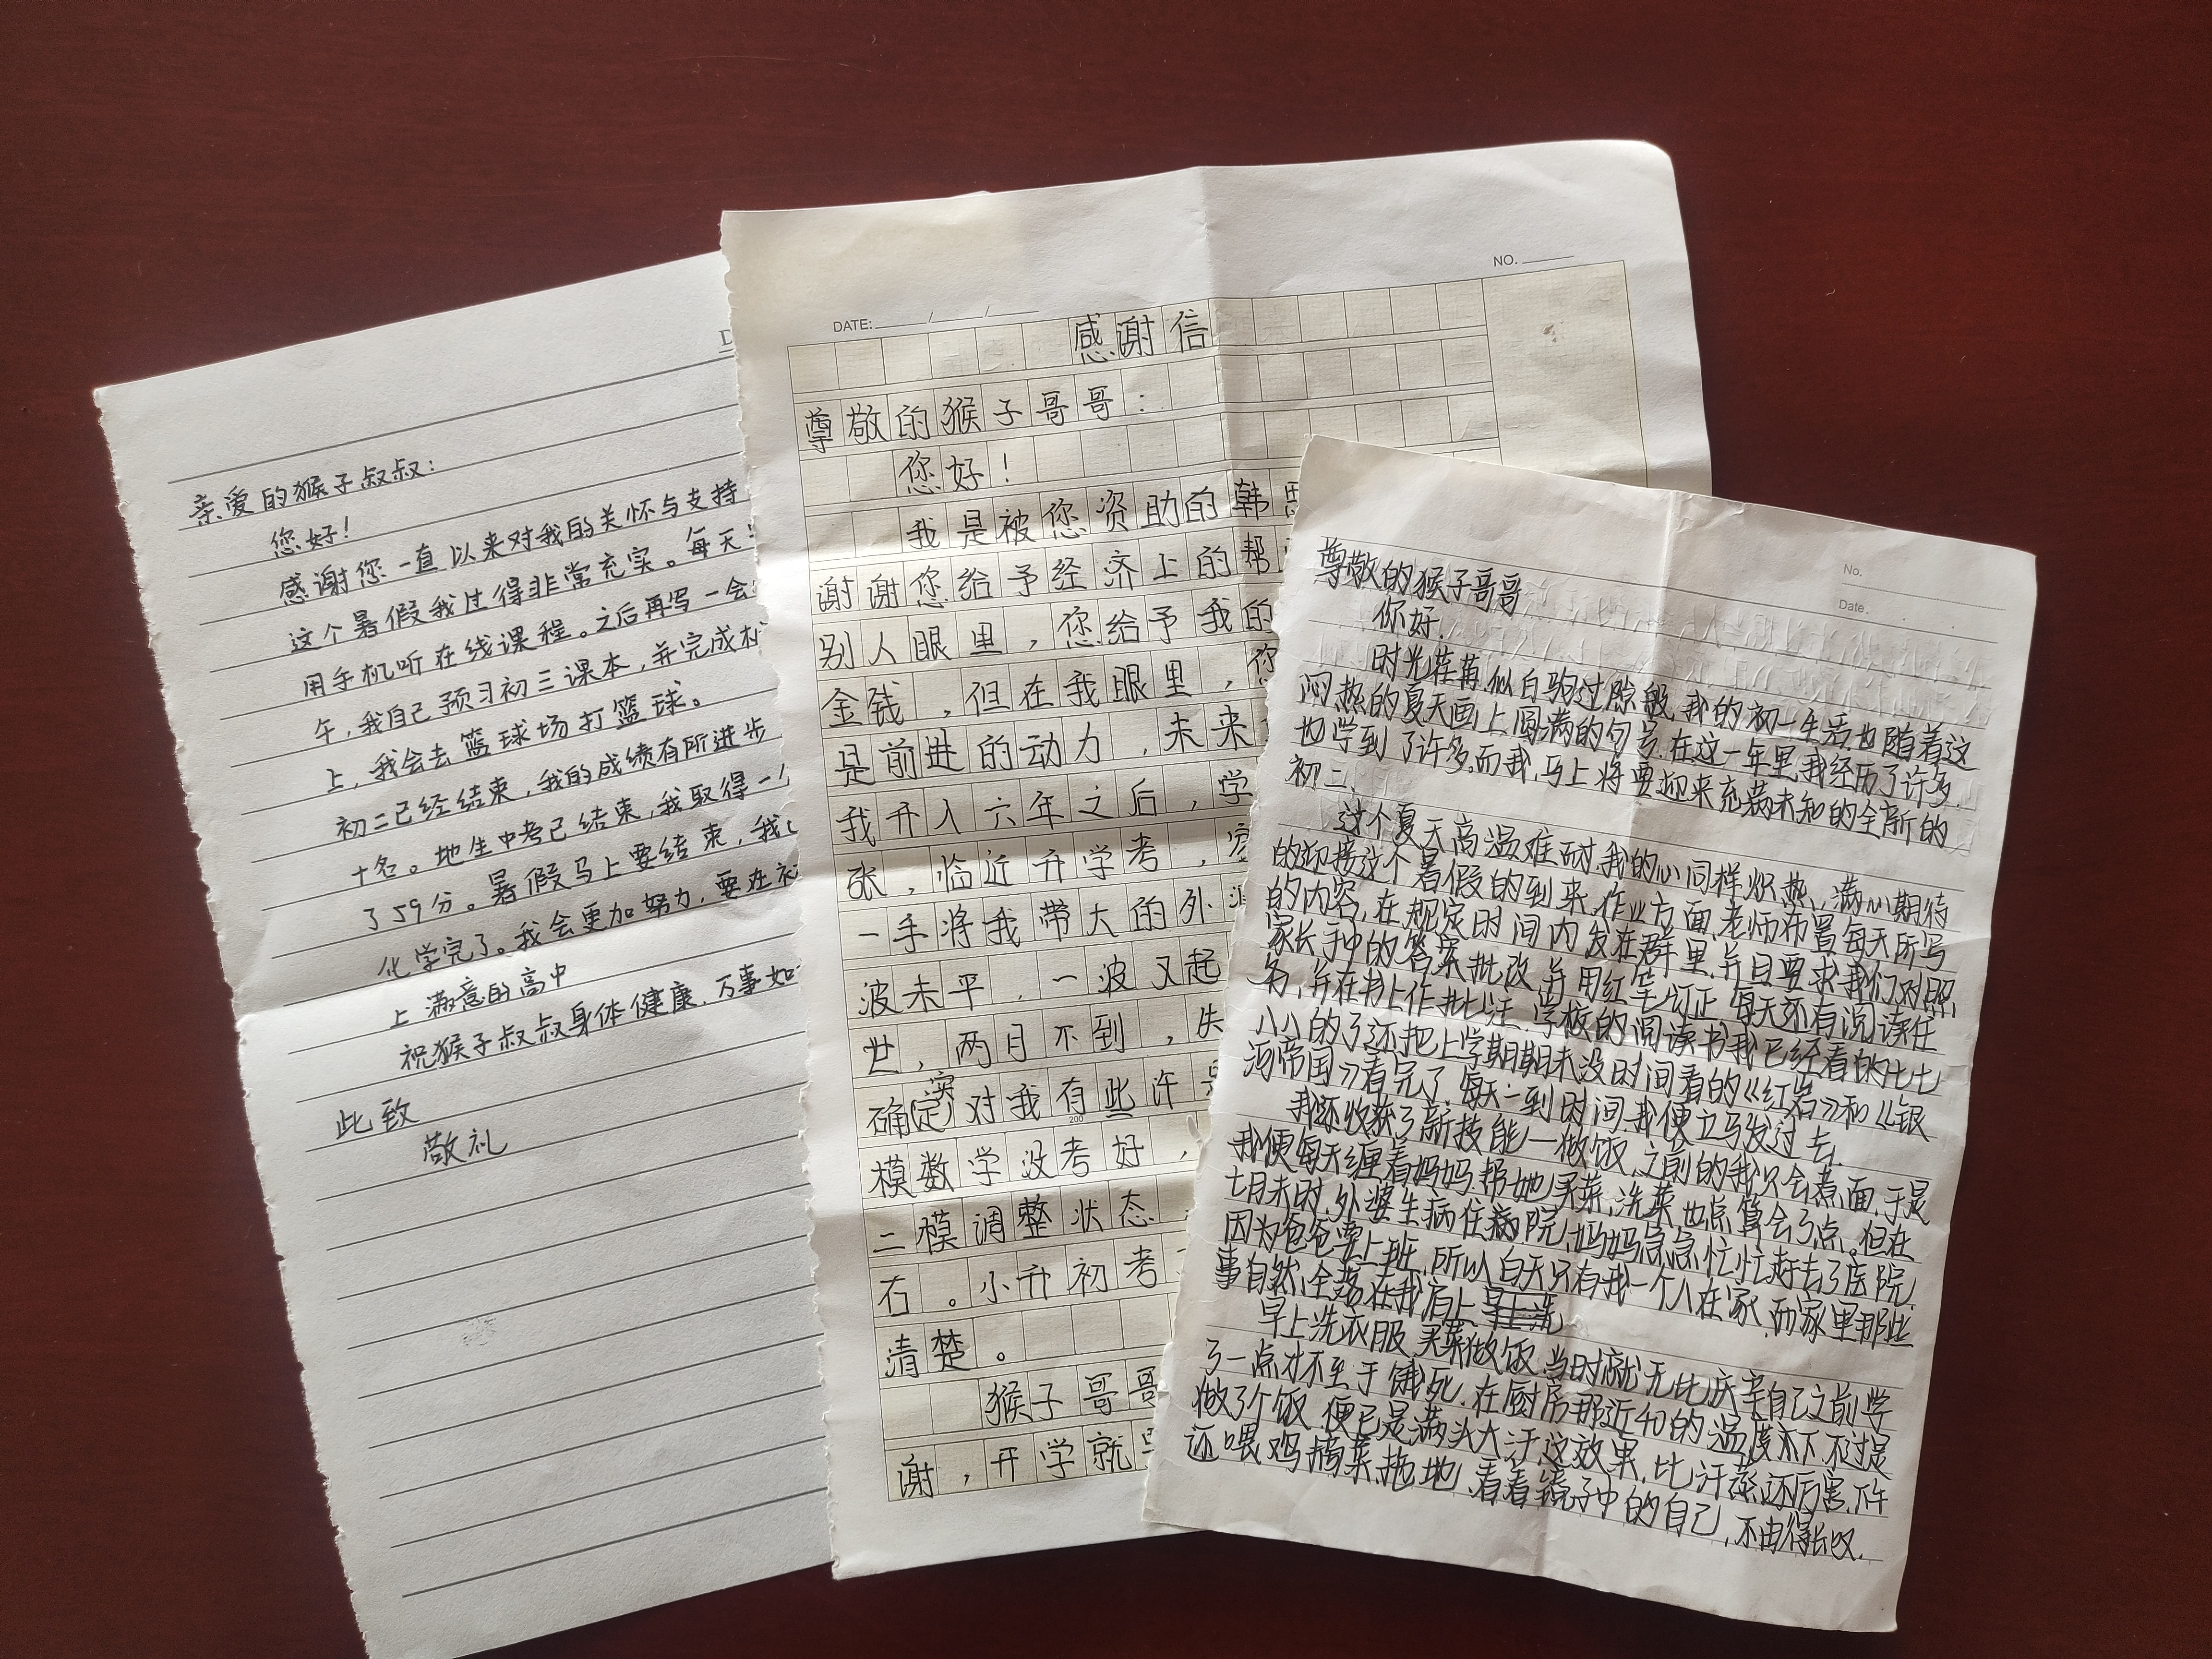 亲爱的猴子叔叔：
您好！
感谢您一直以来对我的关怀与支持
这个暑假我过得非常充实。每天
用手机听在线课程。之后再写一会
午，我自己预习初三课本，并完成
上，我会去篮球场打篮球。
初二已经结束，我的成绩有所进步
十名。地生中考已结束，我取得一
了59分。暑假马上要结束，我
化学完了。我会更加努力，要在
上满意的高中
祝猴子叔叔身体健康，万事如
此致
敬礼
NO.
DATE: / /
感谢信
尊敬的猴子哥哥：
您好！
我是被您资助的韩
谢谢您给予经济上的帮
别人眼里，您给予我的
金钱，但在我眼里，您
是前进的动力，未来
我升入六年之后，学
张，临近升学考，
一手将我带大的外
波未平，一波又起
世，两月不到，失
确(定)实对我有些许
200
模数学没考好，
二模调整状态
右。小升初考
清楚。
猴子哥哥
谢，开学就
No.
Date.
尊敬的猴子哥哥
你好.
时光荏苒,似白驹过隙般,我的初一生活也随着这
闷热的夏天画上圆满的句号.在这一年里,我经历了许多.
也学到了许多.而我,马上将要迎来充满未知的全新的
初二.
这个夏天高温难耐,我的心同样炽热,满心期待
的迎接这个暑假的到来.作业方面,老师布置每天所写
的内容,在规定时间内发在群里,并且要求我们对照
家长手中的答案批改,并用红笔订正,每天还有阅读任
务,并在书上作批注.学校的阅读书我已经看的七七
八八的了还把上学期期末没时间看的《红岩》和《银
河帝国》看完了.每天一到时间,我便立马发过去.
我还收获了新技能—做饭,之前的我只会煮面,于是
我便每天缠着妈妈,帮她买菜,洗菜,也点算会了点。但在
七月末时,外婆生病住病院,妈妈急急忙忙赶去了医院,
因为爸爸要上班,所以白天只有我一个人在家,而家里那些
事自然,全落在我肩上早上洗
早上洗衣服,买菜做饭,当时就无比庆幸自己之前学
了一点才不至于饿死,在厨房那近40的温度下,不过是
做了个饭,便已是满头大汗,这效果,比汗蒸还厉害,下午
还喂鸡,摘菜,拖地,看看镜子中的自己,不由得长叹.